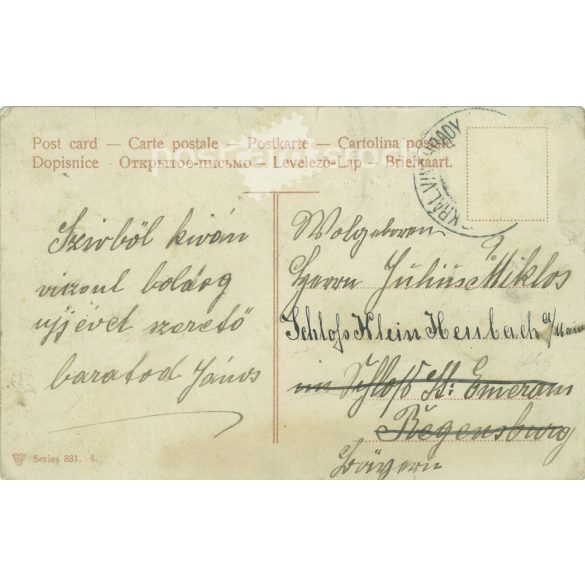 Post card — Carte postale — Postkarte — Cartolina postale
Dopisnice — Открытое-письмо — Levelező-Lap — Briefkaart.
KRÁL. VINOHRADY
Szivből kiván
viszont boldog
ujjévet szerető
baratod János
Wolgeboren
Herrn Julius Miklos
Schloß Klein Heubach a/Main
im Schloß St: Emeram
Regensburg
Bayern
Series 881. 4.